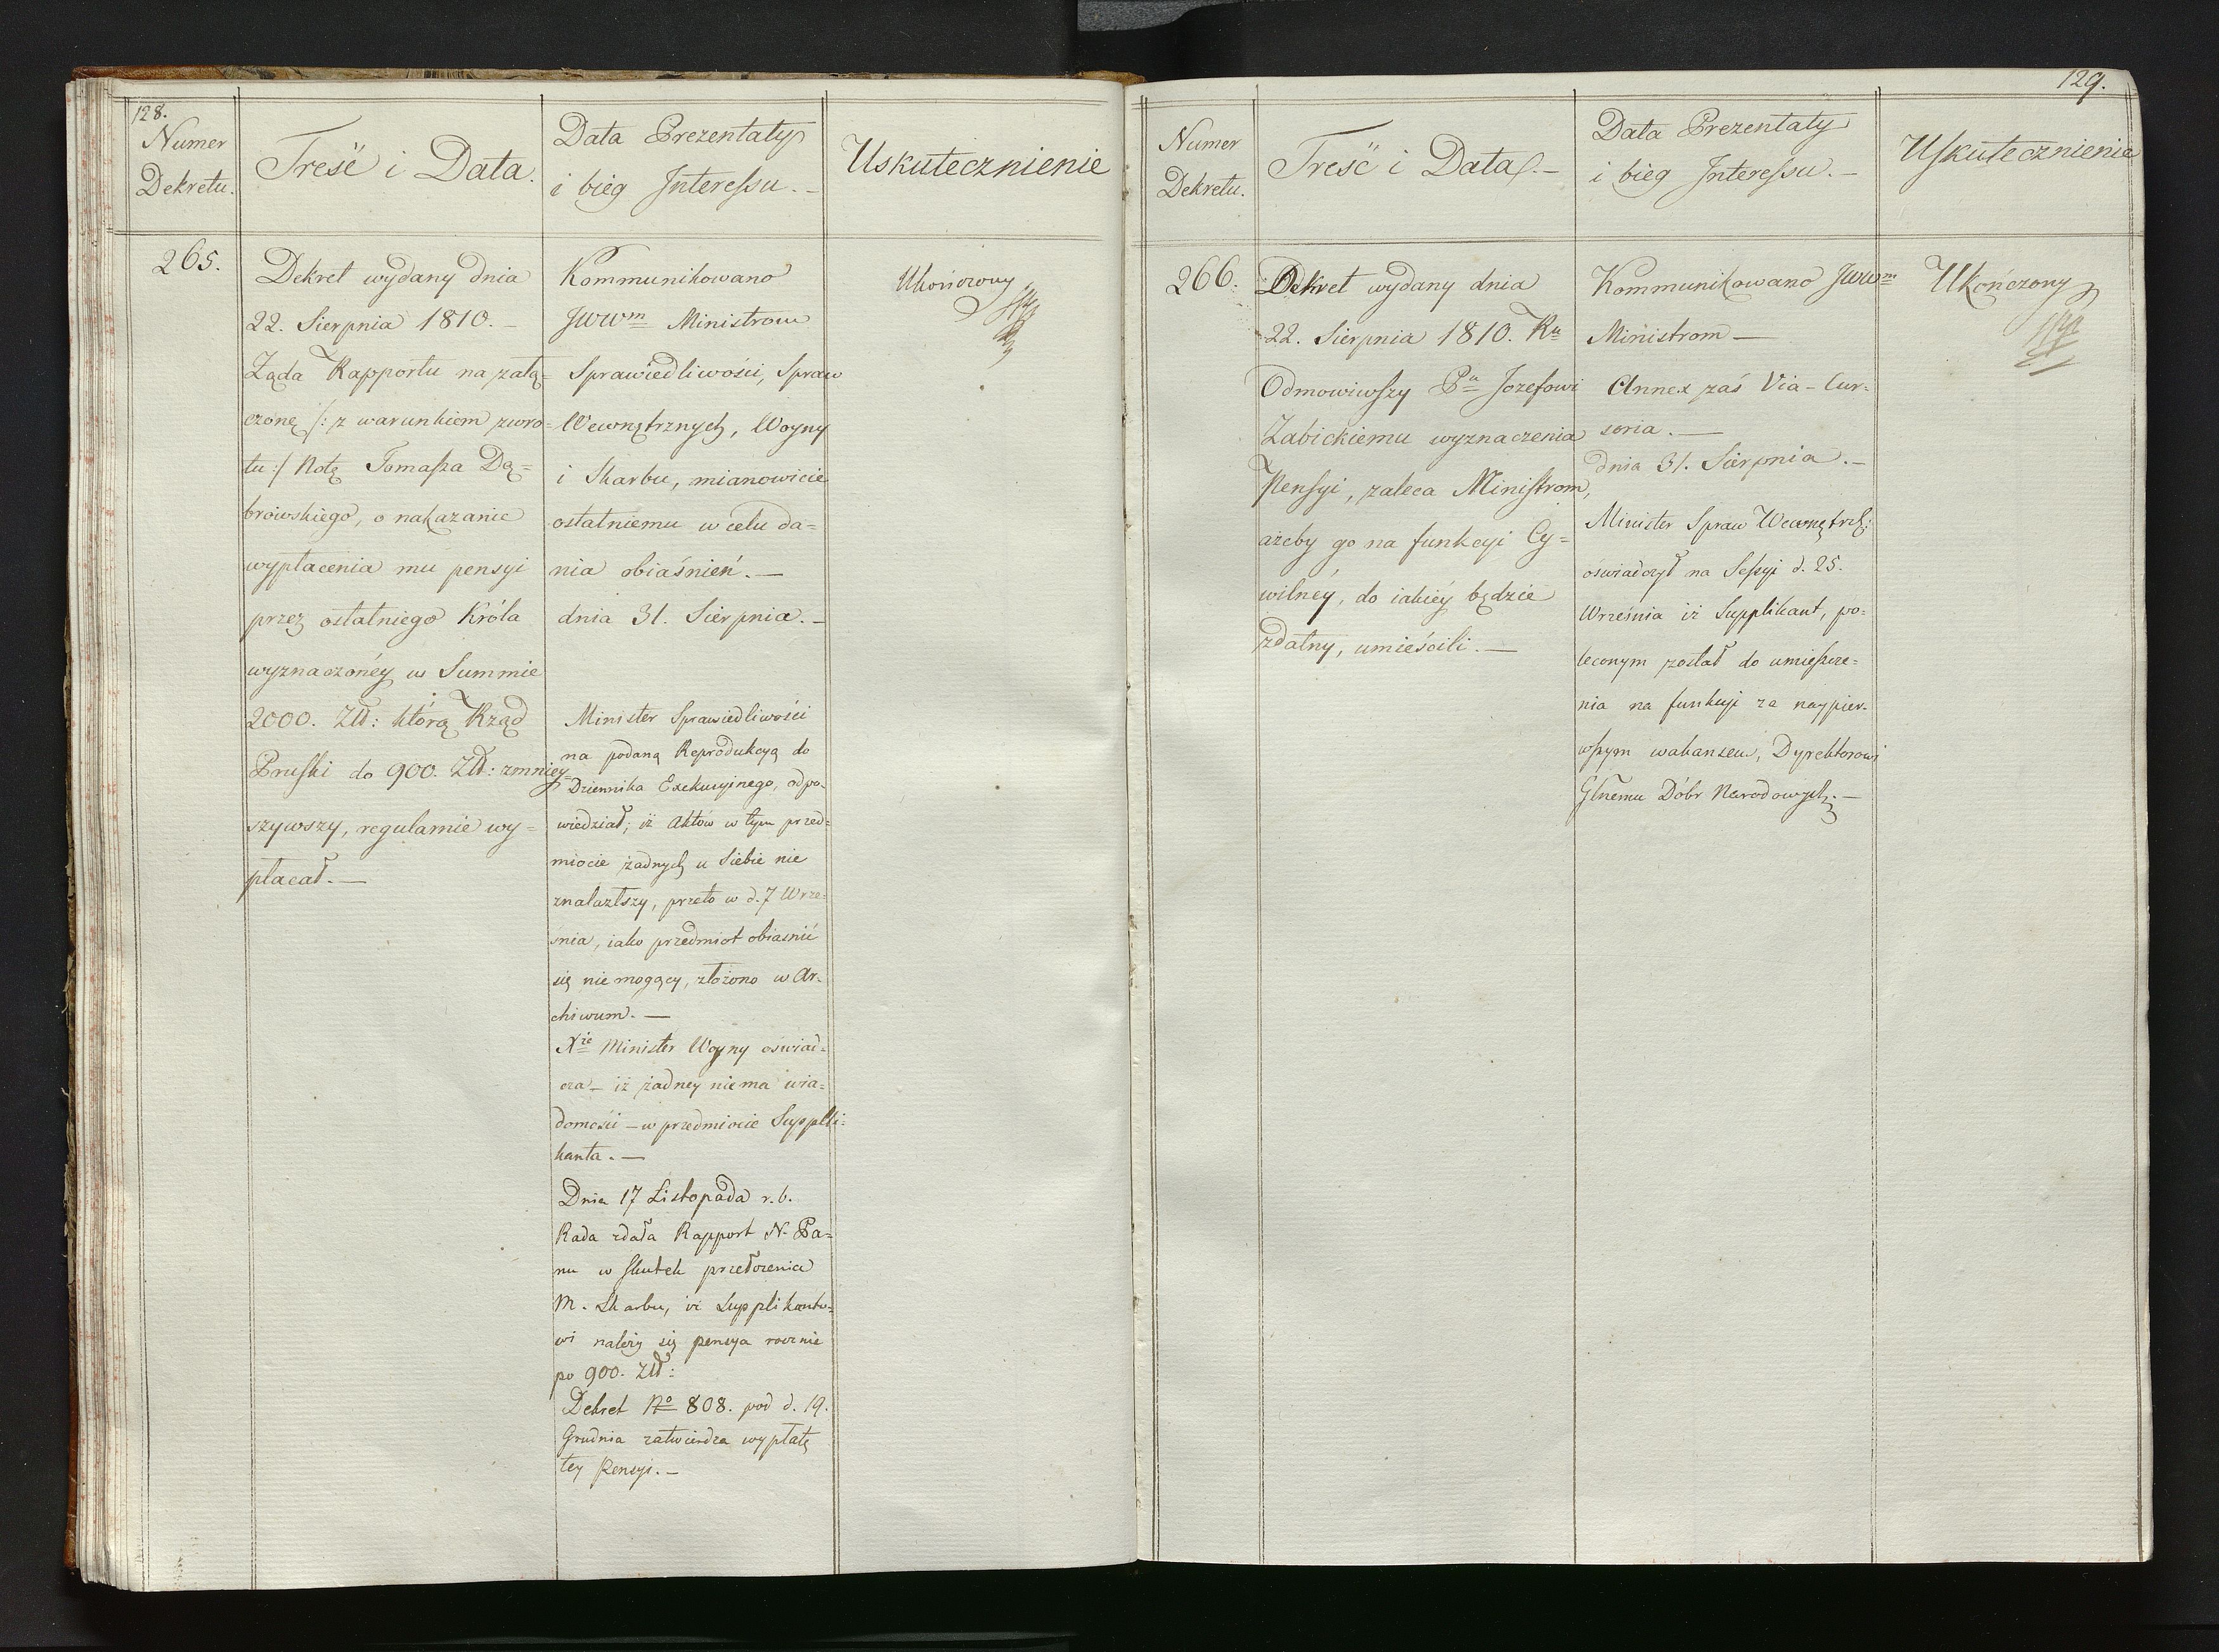 128.
Numer
Dekretu.
Treść i Data.
Data Prezentaty
i bieg Interessu. –
Uskutecznienie
265.
Dekret wydany dnia
22. Sierpnia 1810. –
Ząda Rapportu na załą=
czoną /: z warunkiem zwro=
tu :/ Notę Tomasza Dą=
browskiego, o nakazanie
wypłacenia mu pensyi
przez ostatniego Króla
wyznaczonéy w Summie
2000. Złł: którą Rząd
Pruski do 900. Złł: zmniey=
szywszy, regularnie wy=
płacał. —
Kommunikowano
JWWm Ministrom
Sprawiedliwości, Spraw
Wewnętrznych, Woyny
i Skarbu, mianowicie
ostatniemu w celu da=
nia obiaśnień. —
dnia 31. Sierpnia. –
Minister Sprawiedliwości
na podaną Reprodukcyą do
Dziennika Exekucyinego, odpo=
wiedział, iż Aktów w tym przed=
miocie żadnych u Siebie nie
znalazłszy, przeto w d. 7 Wrze=
śnia, iako przedmiot obiasnić
się nie mogący, złożono w Ar=
chiwum. —
Nie Minister Woyny oswiad=
cza – iż żadney niema wia=
domości – w przedmiocie Suppli=
kanta. —
Dnia 17 Listopada r. b.
Rada zdała Rapport N. Pa=
nu w skutek przełożenia
M. Skarbu, iż Supplikanto=
wi należy się pensya rocznie
po 900. Złł:
Dekret No 808. pod d. 19.
Grudnia zatwierdza wypłatę
tey Pensyi. –
Ukończony
129.
Numer
Dekretu.
Treść i Data. –
Data Prezentaty
i bieg Interessu. –
Uskutecznienie
266.
Dekret wydany dnia
22. Sierpnia 1810. Ru
Odmowiwszy Pu Jozefowi
Zabickiemu wyznaczenia
Pensyi, zaleca Ministrom,
ażeby go na funkcyi Cy=
wilnéy, do iakiéy będzie
zdatny, umieścili. —
Kommunikowano JWWm
Ministrom —
Annex zaś Via-Cur=
soria. —
dnia 31. Sierpnia. –
Minister Spraw Wewnętrch:
oswiadczył na Sessyi d. 25.
Września iż Supplikant, po=
leconym został do umieszcze=
nia na funkcyi za naypier=
wszym wakansem, Dyrektorowi
Głnemu Dóbr Narodowych. —
Ukończony